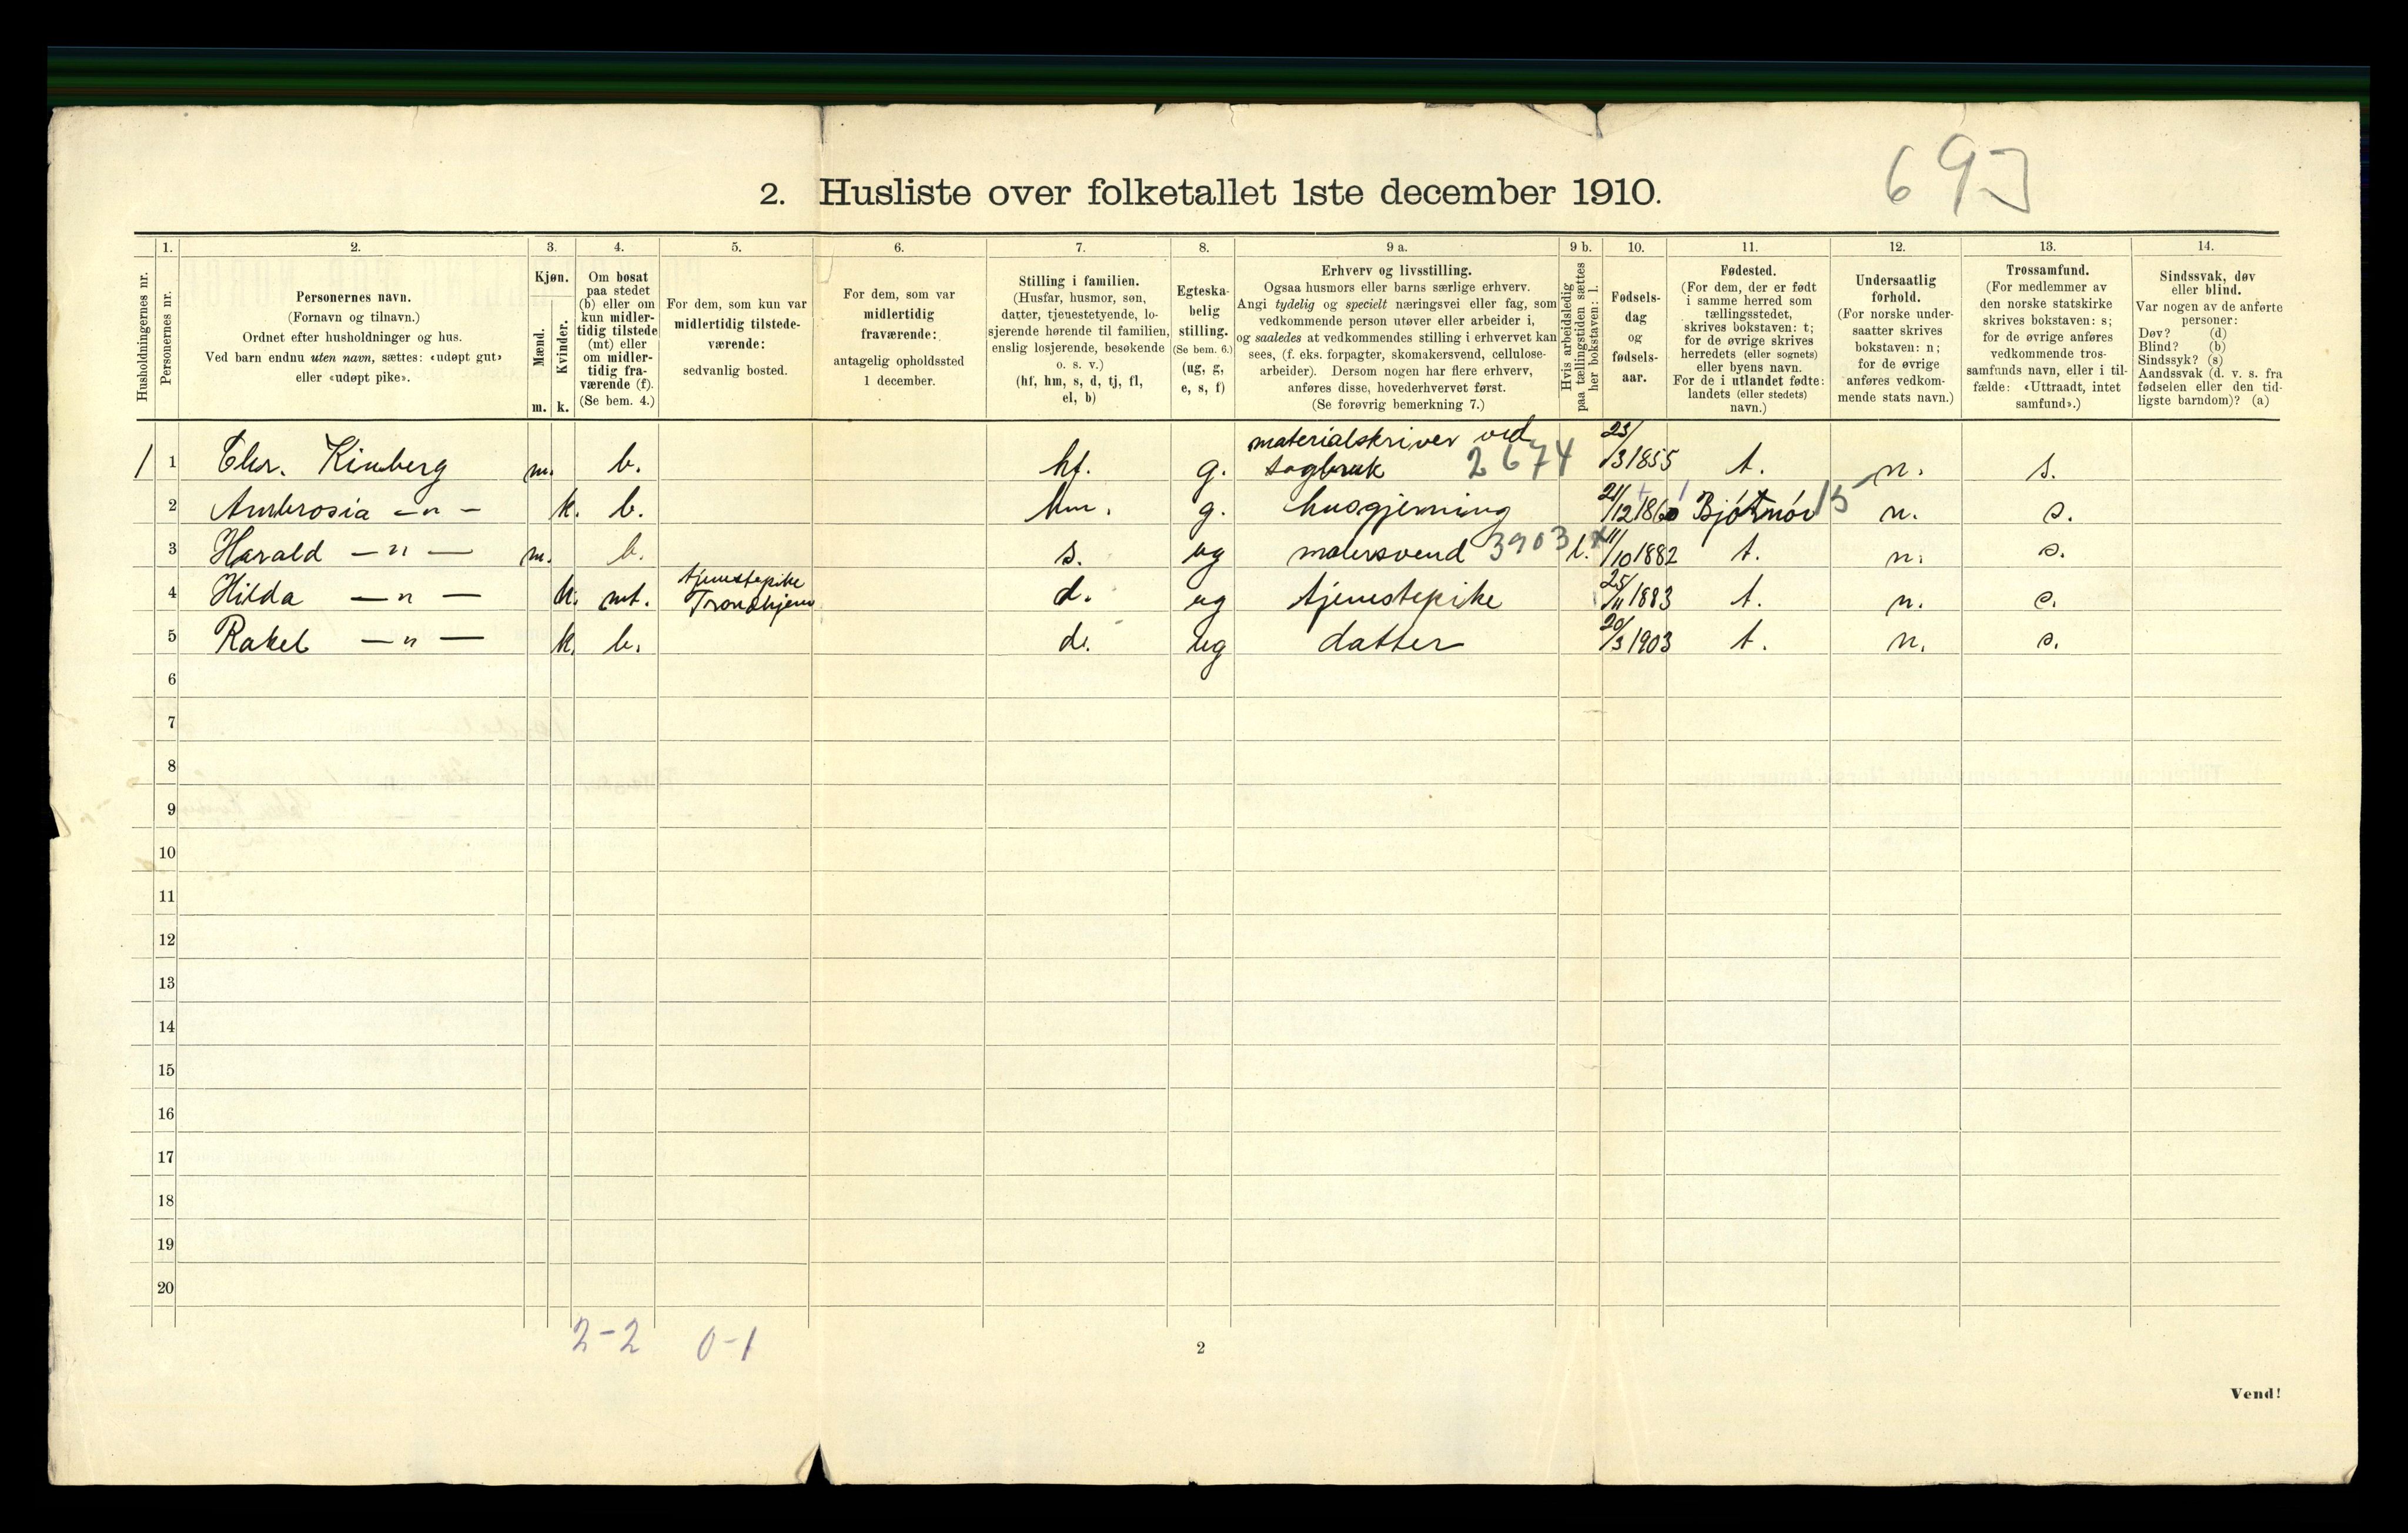 693
2. Husliste over folketallet 1ste december 1910.
Husholdningernes nr.
1.
Personernes nr.
2.
Personernes navn.
(Fornavn og tilnavn.)
Ordnet efter husholdninger og hus.
Ved barn endnu uten navn, sættes: «udøpt gut»
eller «udøpt pike».
3.
Kjøn.
Mænd.
Kvinder.
m. k.
4.
Om bosat
paa stedet
(b) eller om
kun midler-
tidig tilstede
(mt) eller
om midler-
tidig fra-
værende (f).
(Se bem. 4.)
5.
For dem, som kun var
midlertidig tilstede-
værende:
sedvanlig bosted.
6.
For dem, som var
midlertidig
fraværende:
antagelig opholdssted
1 december.
7.
Stilling i familien.
(Husfar, husmor, søn,
datter, tjenestetyende, lo-
sjerende hørende til familien,
enslig losjerende, besøkende
o. s. v.)
(hf, hm, s, d, tj, fl,
el, b)
8.
Egteska-
belig
stilling.
(Se bem. 6.)
(ug, g,
e, s, f)
9 a.
Erhverv og livsstilling.
Ogsaa husmors eller barns særlige erhverv.
Angi tydelig og specielt næringsvei eller fag, som
vedkommende person utøver eller arbeider i,
og saaledes at vedkommendes stilling i erhvervet kan
sees, (f. eks. forpagter, skomakersvend, cellulose-
arbeider). Dersom nogen har flere erhverv,
anføres disse, hovederhvervet først.
(Se forøvrig bemerkning 7.)
9 b.
Hvis arbeidsledig
paa tællingstiden sættes
her bokstaven: l.
10.
Fødsels-
dag
og
fødsels-
aar.
11.
Fødested.
(For dem, der er født
i samme herred som
tællingsstedet,
skrives bokstaven: t;
for de øvrige skrives
herredets (eller sognets)
eller byens navn.
For de i utlandet fødte:
landets (eller stedets)
navn.)
12.
Undersaatlig
forhold.
(For norske under-
saatter skrives
bokstaven: n;
for de øvrige
anføres vedkom-
mende stats navn.)
13.
Trossamfund.
(For medlemmer av
den norske statskirke
skrives bokstaven: s;
for de øvrige anføres
vedkommende tros-
samfunds navn, eller i til-
fælde: «Uttraadt, intet
samfund».)
14.
Sindssvak, døv
eller blind.
Var nogen av de anførte
personer:
Døv? (d)
Blind? (b)
Sindssyk? (s)
Aandssvak (d. v. s. fra
fødselen eller den tid-
ligste barndom)? (a)
1 1 Chr. Kinberg m. b. hf. g. materialskriver ved sagbruk 2674 23/3 1855 t. n. s.
2 Ambrosia —"— k. b. hm. g. husgjerning 21/12 1860 15 n. s.
3 Harald —"— m. b. s. ug malersvend 3903 l. x 11/10 1882 t. n. s.
4 Hilda —"— k. mt. tjenestepike Trondhjem d. ug tjenestepike 25/11 1883 t. n. s.
5 Rakel —"— k. b. d. ug datter 20/3 1903 t. n. s.
6
7
8
9
10
11
12
13
14
15
16
17
18
19
20
2-2 0-1
2
Vend!